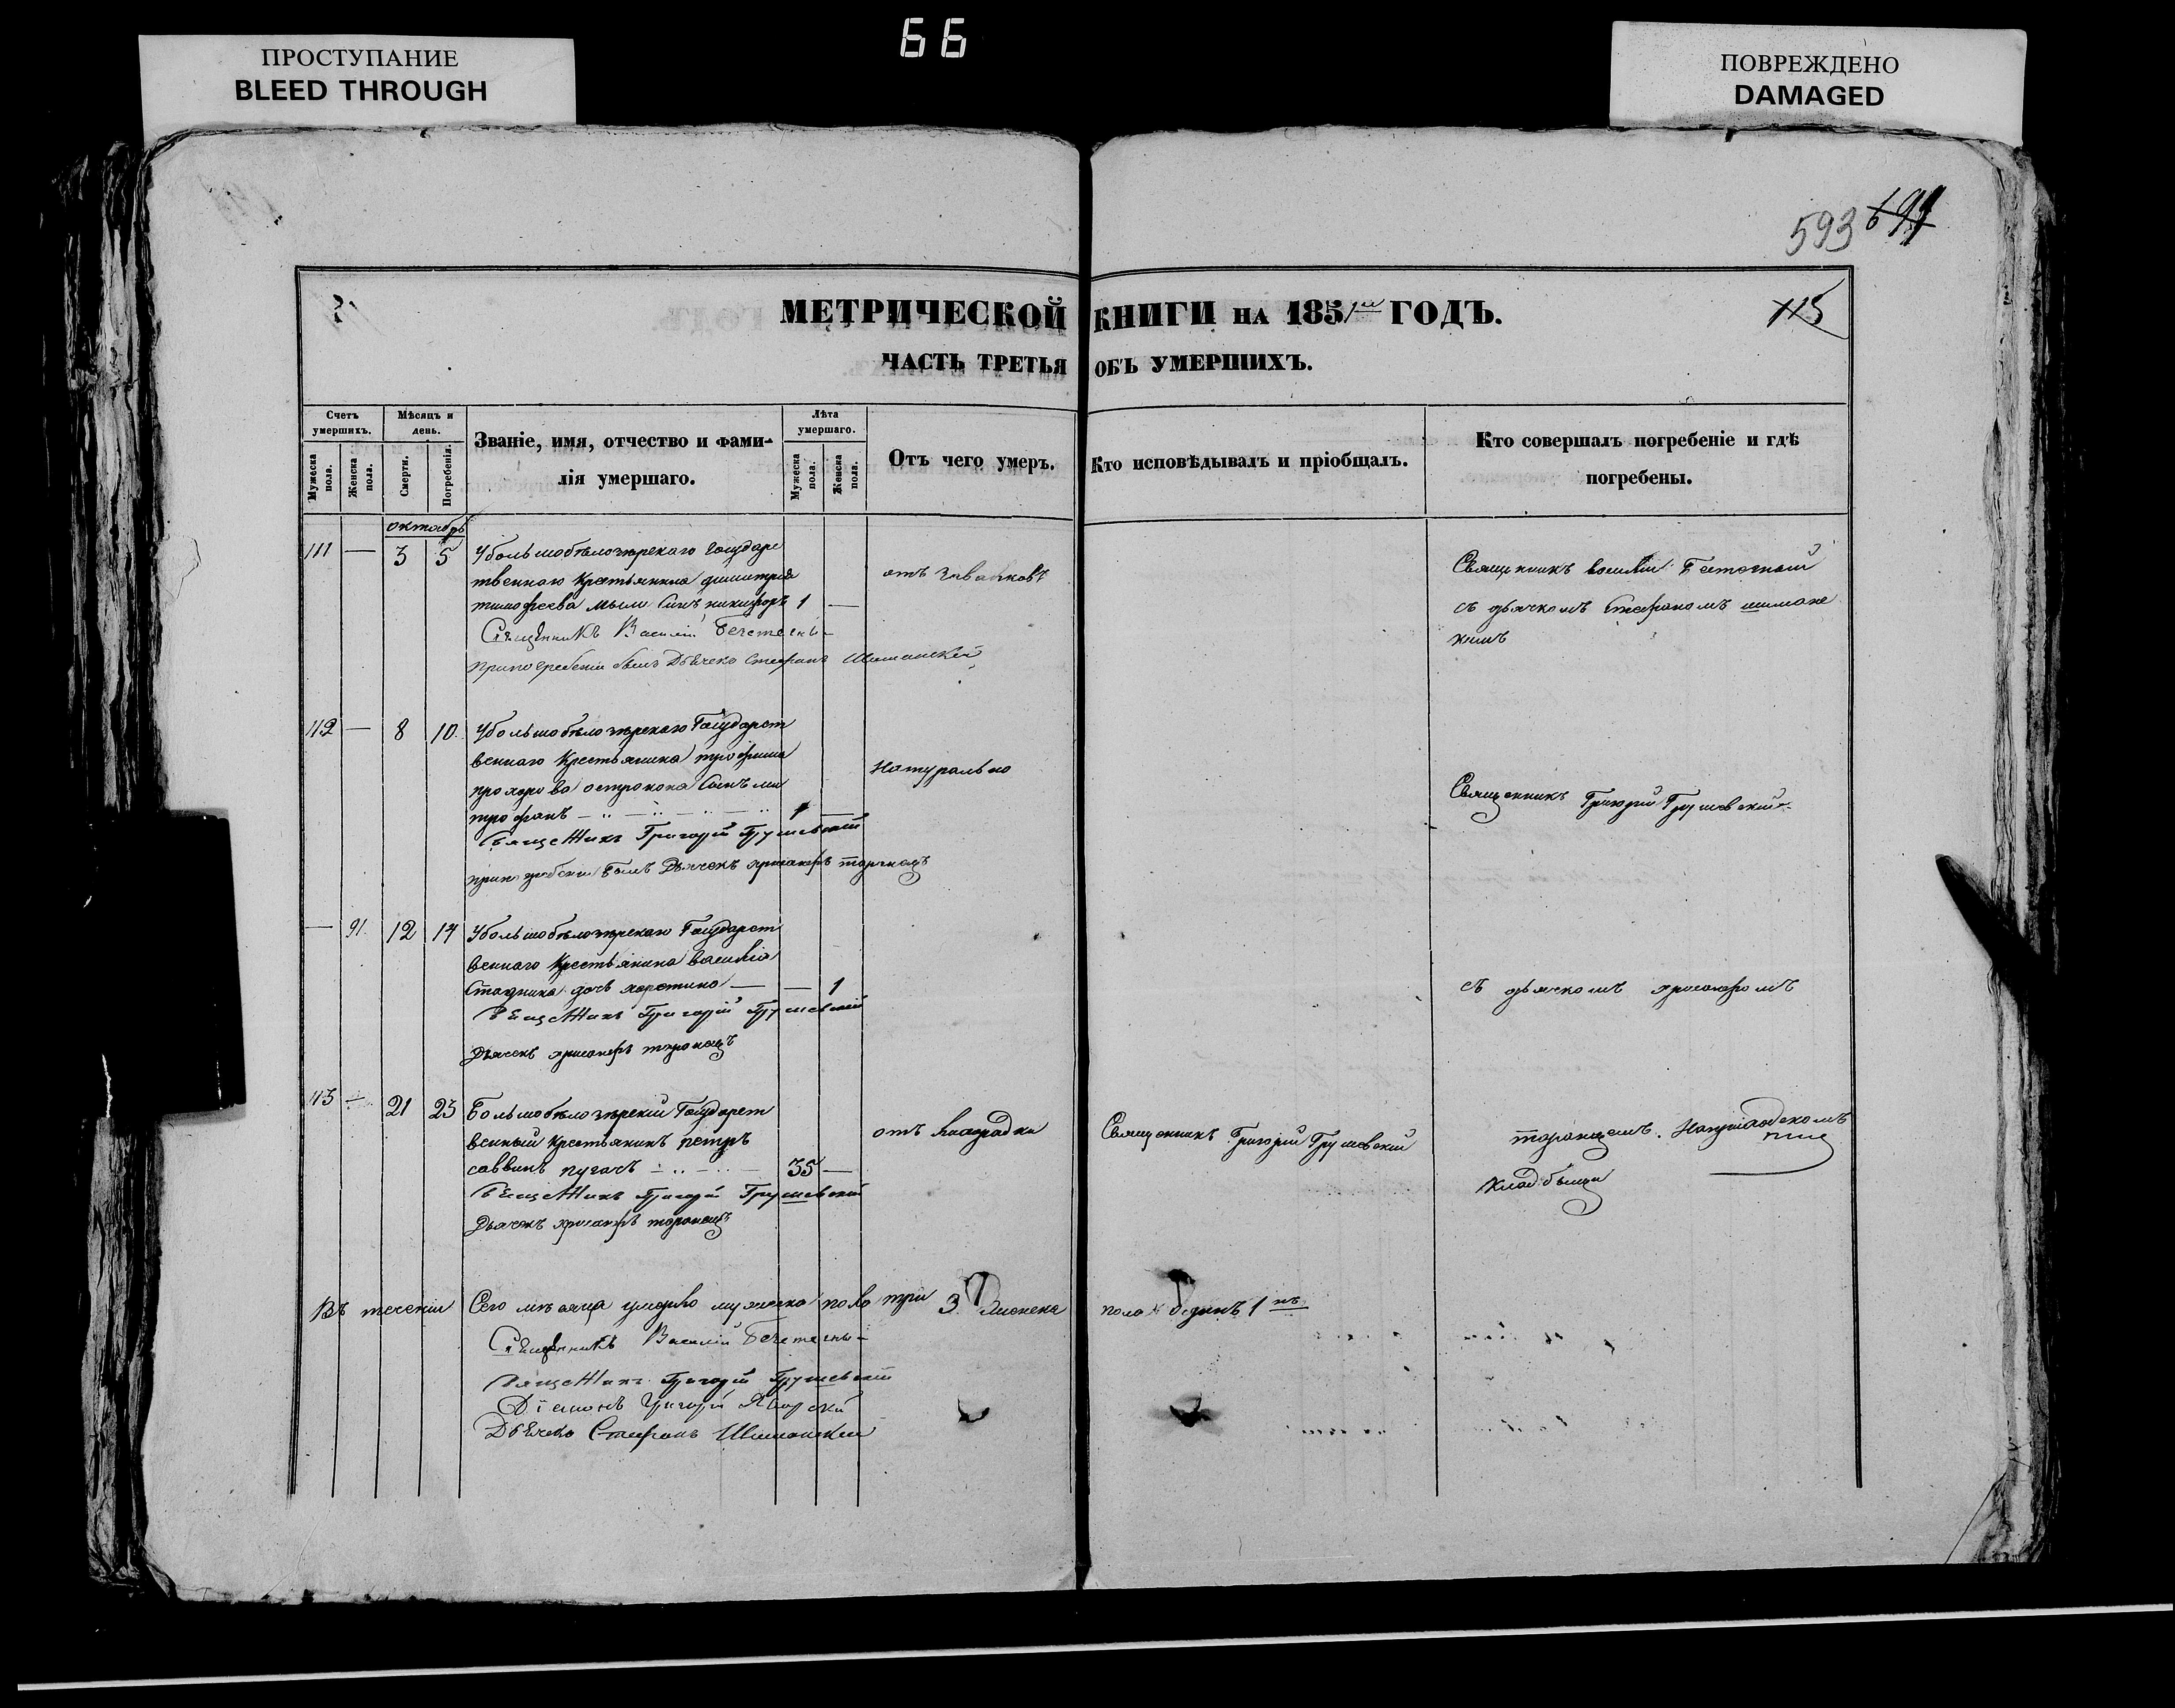 66
ПРОСТУПАНИЕ
BLEED THROUGH
ПОВРЕЖДЕНО
DAMAGED
593
115
МЕТРИЧЕСКОЙ КНИГИ НА 1851 ГОДЪ.
ЧАСТЬ ТРЕТЬЯ ОБЪ УМЕРШИХЪ.
Счетъ умершихъ.
Мужеска пола.
Женска пола.
Мѣсяцъ и день.
Смерти.
Погребенія.
Званіе, имя, отчество и фами-
лія умершаго.
Лѣта умершаго.
Мужеска пола.
Женска пола.
Отъ чего умеръ.
Кто исповѣдывалъ и пріобщалъ.
Кто совершалъ погребеніе и гдѣ
погребены.
октябрь
111 — 3 5 У большобѣлозѣрскаго государс
твеннаго крестьянина димитрія
тимофеева сынъ никифоръ 1 —
Священникъ Василій
при погребеніи былъ Дьячекъ Стефанъ Шиманскій
Священникъ василій
съ дьячкомъ Стефаномъ шиманс
кимъ
112 — 8 10 У большобѣлозѣрскаго Государст
веннаго крестьянина трофима
прохорова сынъ ми
трофанъ 1 —
натурально
Священникъ Григорій Грушевскій
при погребеніи былъ Дьячекъ
Священникъ Григорій Грушевскій
— 91 12 14 У большобѣлозѣрскаго Государст
веннаго крестьянина василія
Стадника дочь харетина — — 1
Священникъ Григорій Грушевскій
Дьячекъ
съ дьячкомъ
113 — 21 23 Большобѣлозѣрскій Государст
венный крестьянинъ петръ
саввинъ пугачъ 35 —
отъ лихорадки
Священникъ Григорій Грушевскій
Священникъ Григорій Грушевскій
Дьячекъ
кладбищи
Въ теченіи Сего мѣсяца умерло мужеска пола три 3. Женска пола одинъ 1
Священникъ Василій
Священникъ Григорій Грушевскій
Діаконъ Григорій
Дьячекъ Стефанъ Шиманскій